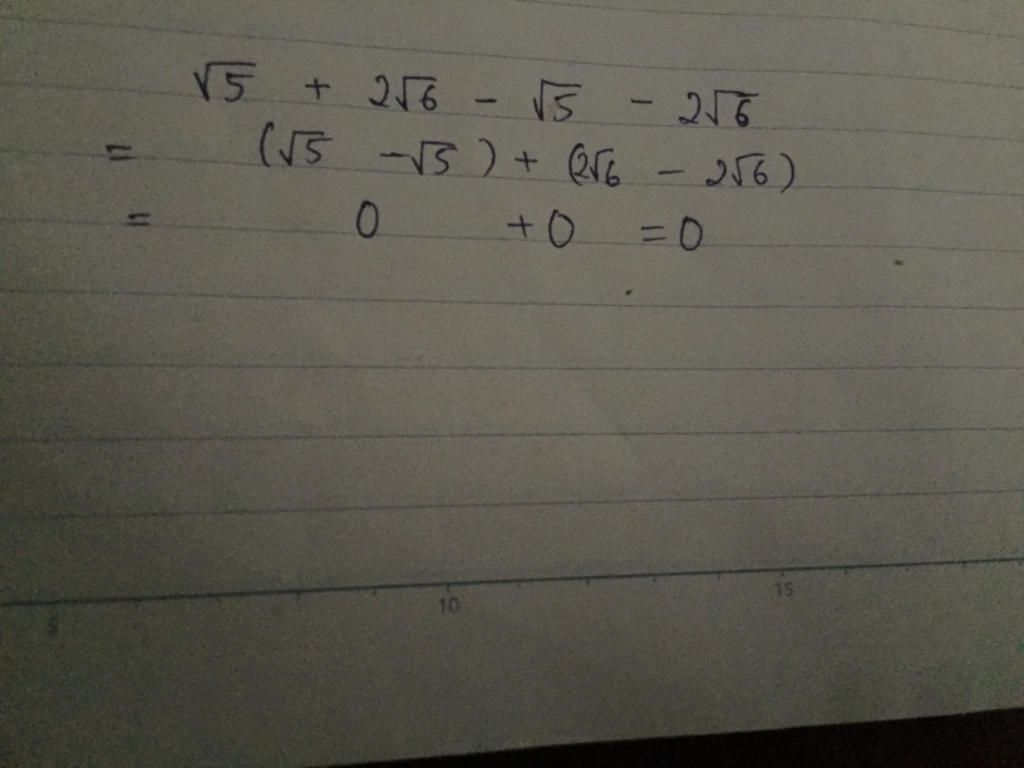 √5 + 2√6 - √5 - 2√6
= (√5 -√5) + (2√6 - 2√6)
= 0 +0 =0
10 15